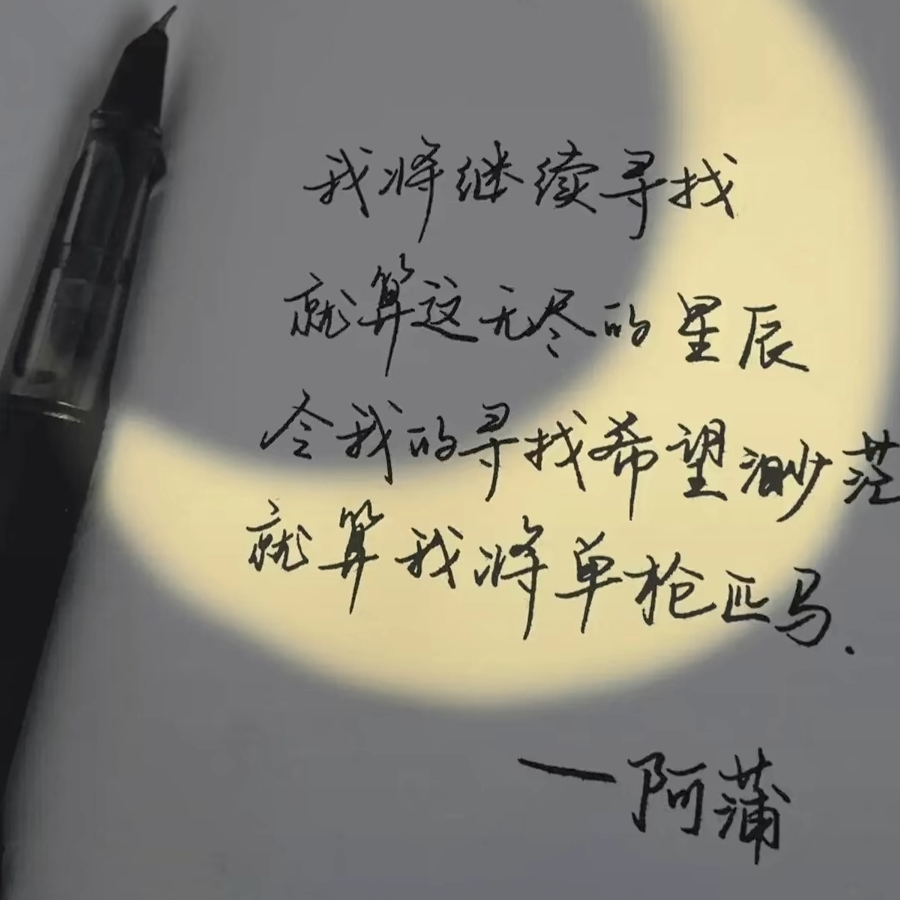 我将继续寻找
就算这无尽的星辰
令我的寻找希望渺茫
就算我将单枪匹马.
—阿蒲